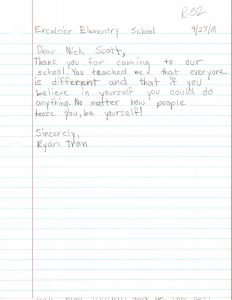 R-52
Excelsior Elementry School 9/27/18
Dear Nick Scott,
Thank you for coming to our
school. You teached me that everyone
is different and that if you
believe in yourself you could do
anything. No matter how people
tease you, be yourself!
Sincerely,
Ryan Tran